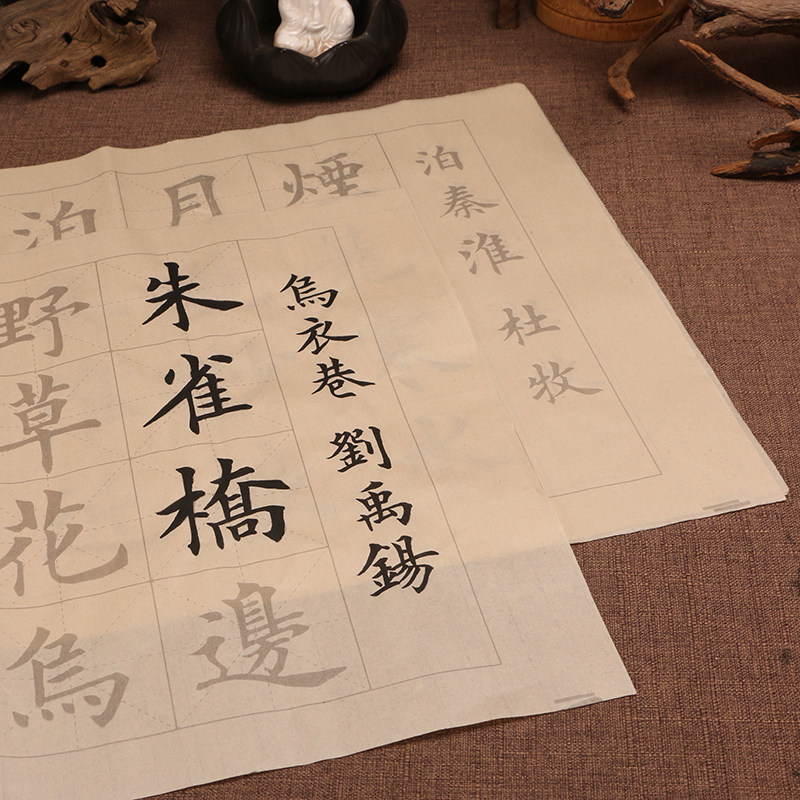 烏衣巷 劉禹錫
朱雀橋邊
野草花
烏
泊秦淮 杜牧
煙
月
泊